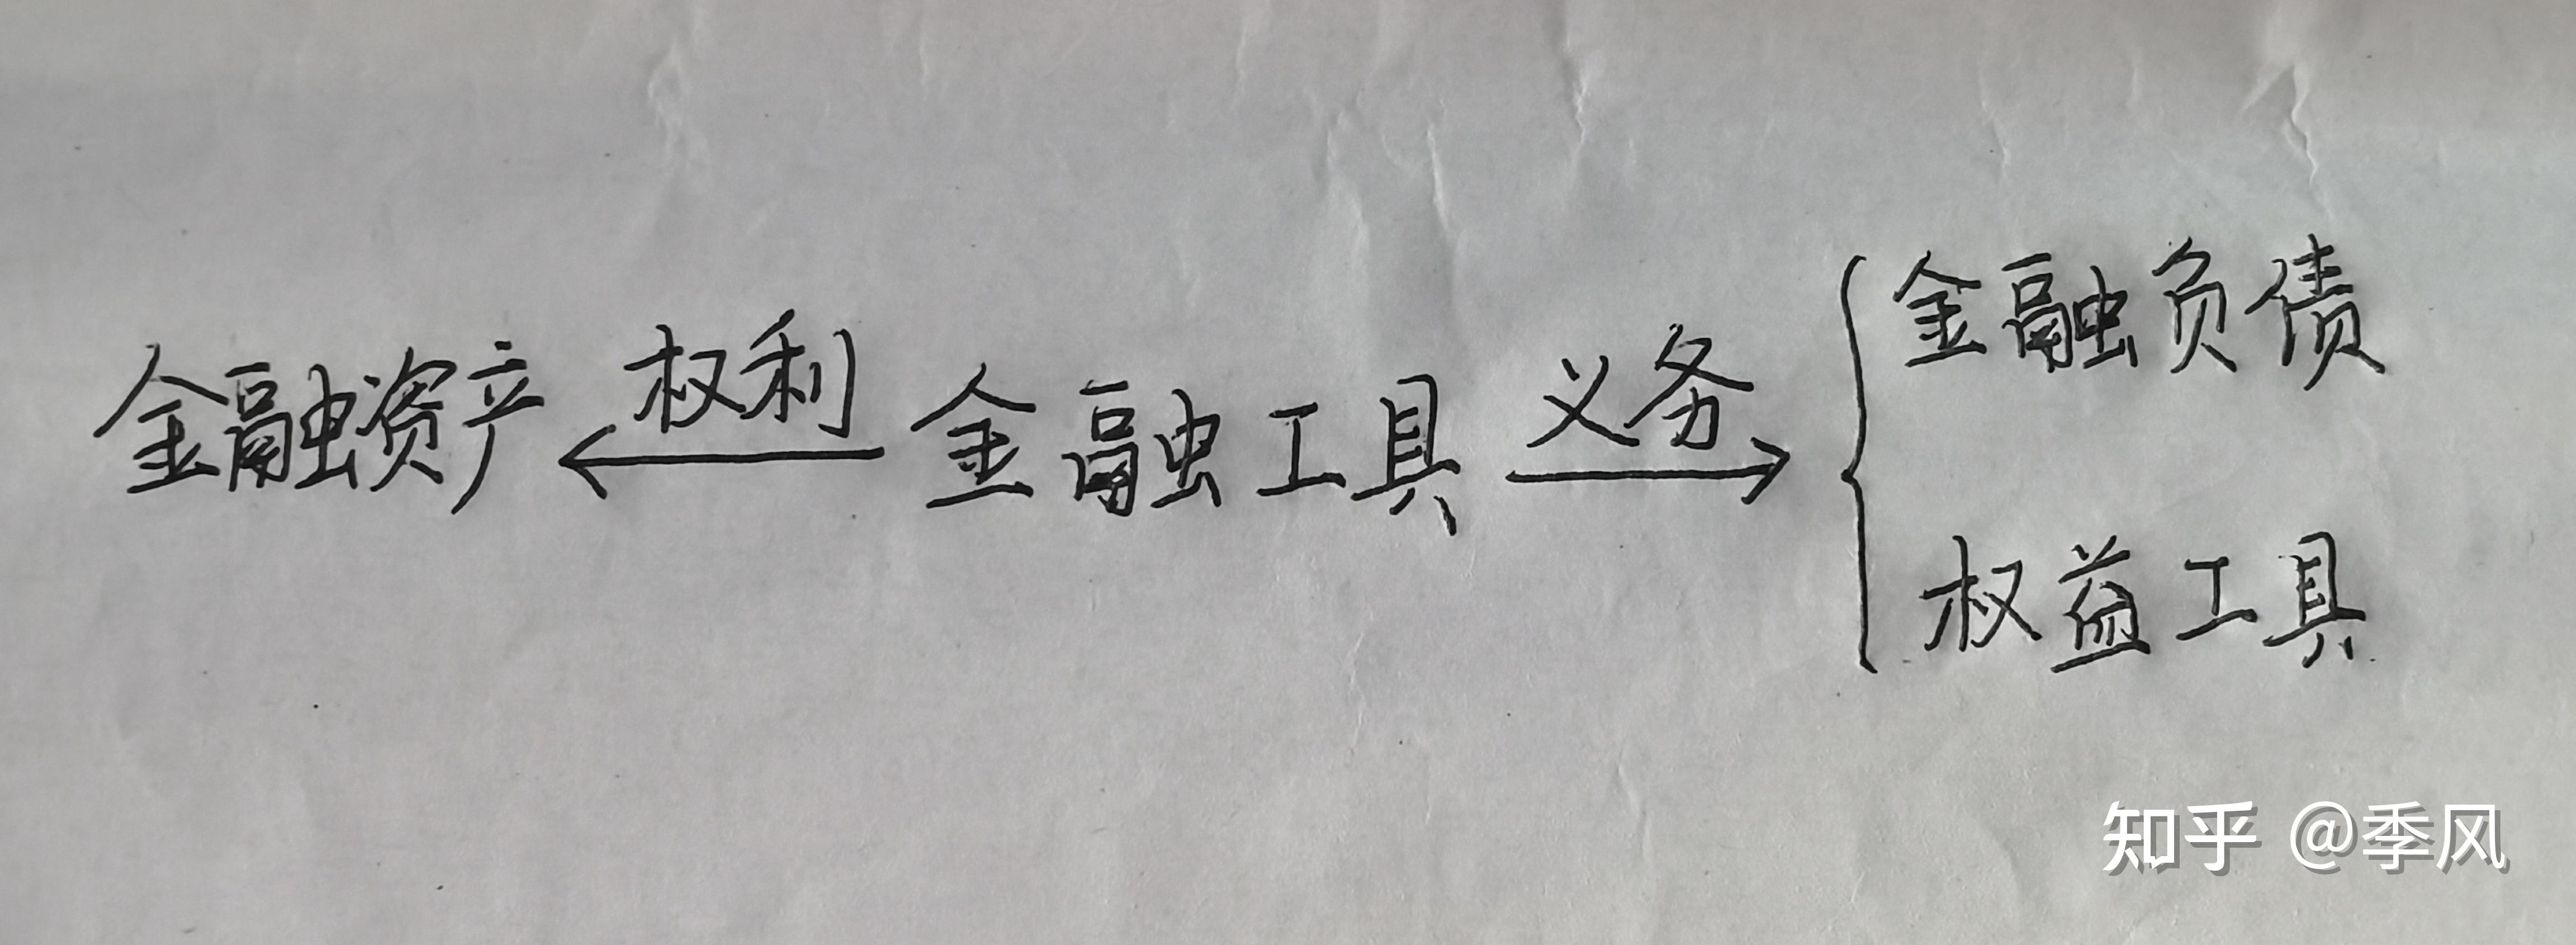 金融资产 ← 权利 金融工具 义务 → { 金融负债
权益工具
知乎 @季风